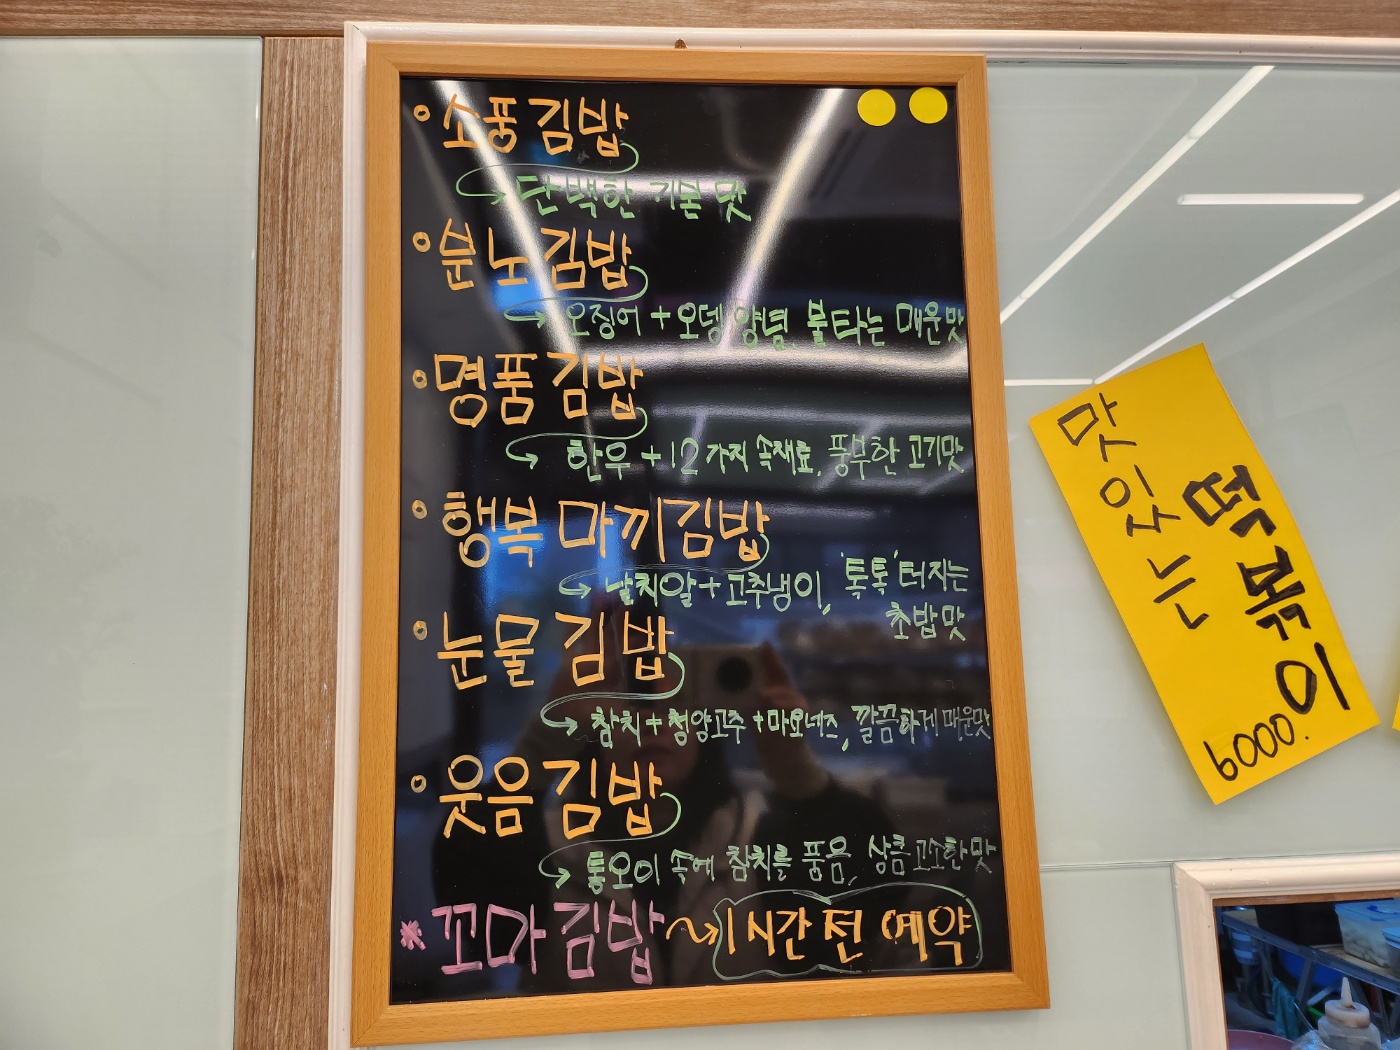 소풍김밥
단백한 기본 맛
분노김밥
오징어 + 오뎅양념, 불타는 매운맛
명품김밥
한우 + 12가지 속재료, 풍부한 고기맛
행복 마끼김밥
날치알 + 고추냉이, '톡톡' 터지는
초밥맛
눈물김밥
참치 + 청양고추 + 마요네즈, 깔끔하게 매운맛
웃음김밥
통오이 속에 참치를 품음, 상큼고소한맛
* 꼬마김밥 1시간 전 예약
맛있는
떡볶이
6000.